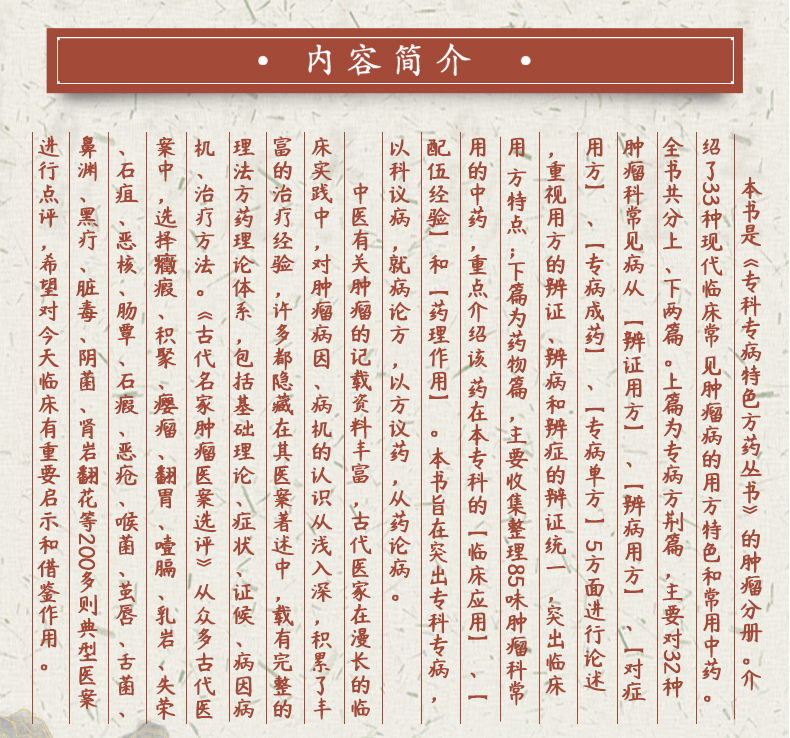 内容简介
本书是《专科专病特色方药丛书》的肿瘤分册。介
绍了33种现代临床常见肿瘤病的用方特色和常用中药。
全书共分上、下两篇。上篇为专病方剂篇,主要对32种
肿瘤科常见病从【辨证用方】、【辨病用方】、【对症
用方】、【专病成药】、【专病单方】5方面进行论述
,重视用方的辨证、辨病和辨症的辨证统一,突出临床
用方特点;下篇为药物篇,主要收集整理85味肿瘤科常
用的中药,重点介绍该药在本专科的【临床应用】、【
配伍经验】和【药理作用】。本书旨在突出专科专病,
以科议病,就病论方,以方议药,从药论病。
中医有关肿瘤的记载资料丰富,古代医家在漫长的临
床实践中,对肿瘤病因、病机的认识从浅入深,积累了丰
富的治疗经验,许多都隐藏在其医案著述中,载有完整的
理法方药理论体系,包括基础理论、症状、证候、病因病
机、治疗方法。《古代名家肿瘤医案选评》从众多古代医
案中,选择癥瘕、积聚、瘿瘤、翻胃、噎膈、乳岩、失荣
、石疽、恶核、肠覃、石瘕、恶疮、喉菌、茧唇、舌菌、
鼻渊、黑疔、脏毒、阴菌、肾岩翻花等200多则典型医案
进行点评,希望对今天临床有重要启示和借鉴作用。